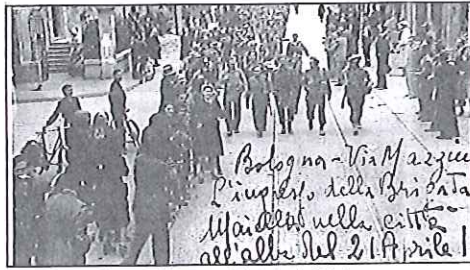 Bologna - Via Mazzini
L'ingresso della Brigata
Maiella nella città
all'alba del 21 Aprile